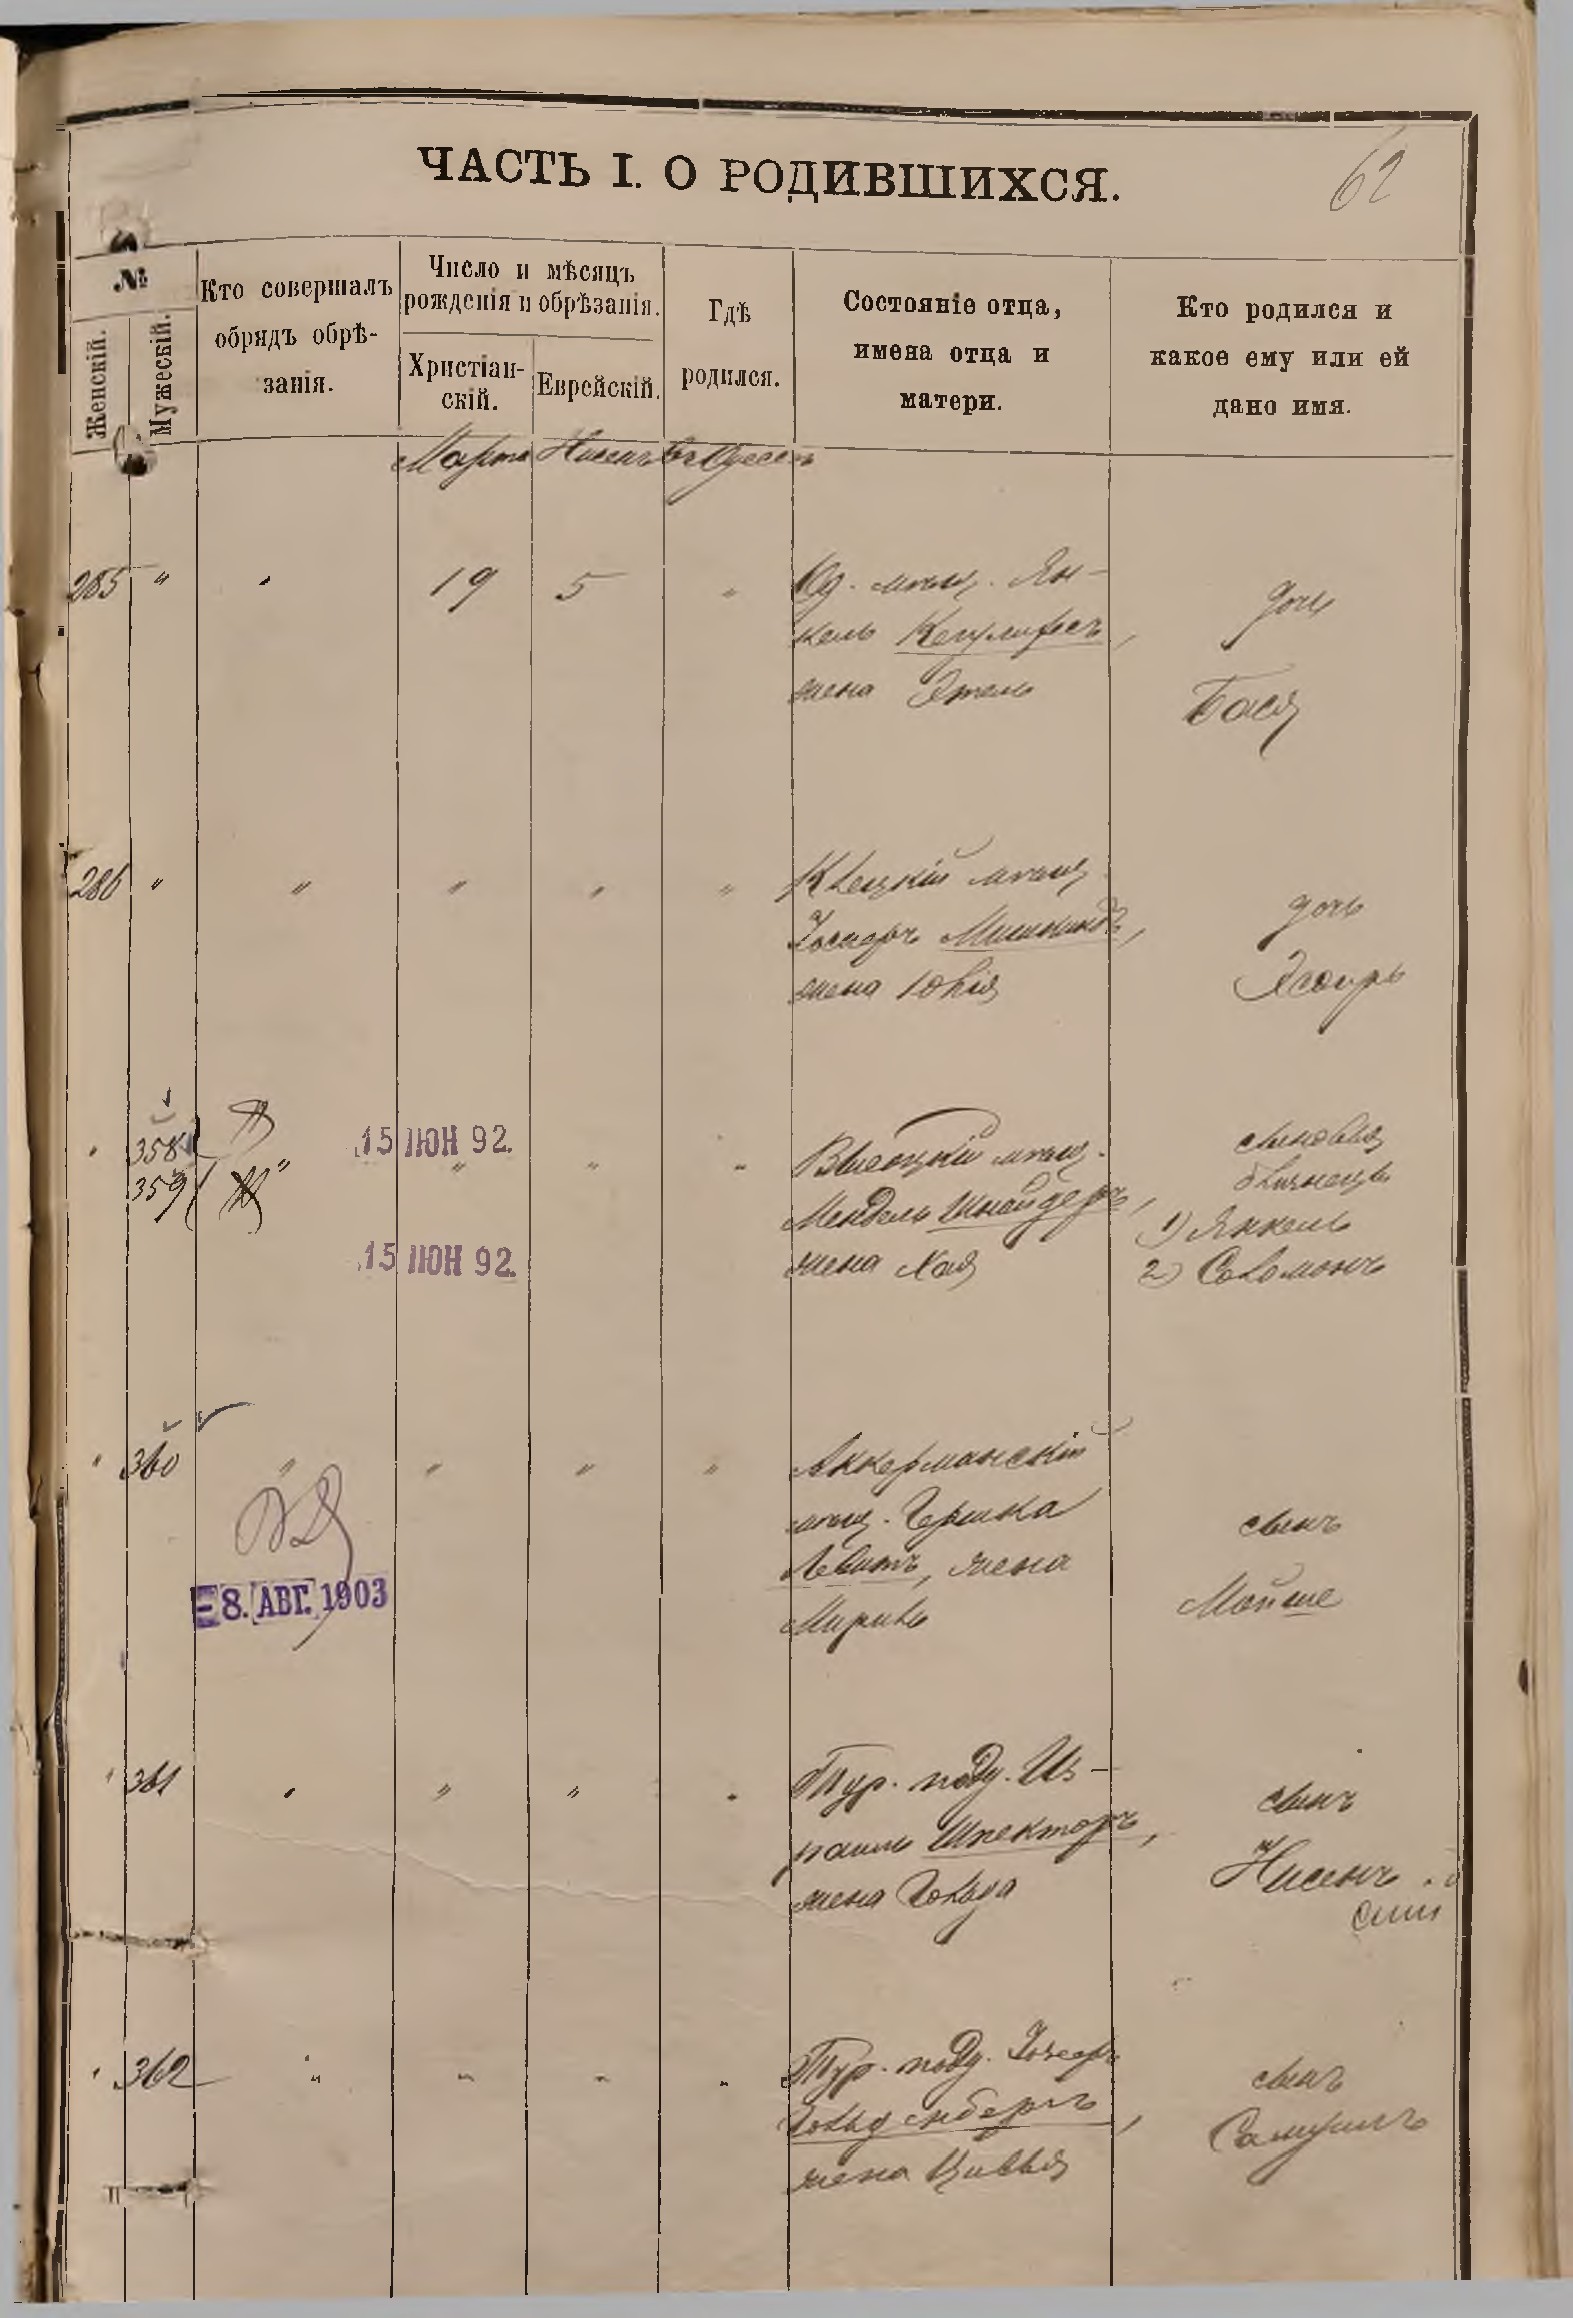 ЧАСТЬ I. О РОДИВШИХСЯ.
62
№
Женскій.
Мужескій.
Кто совершалъ
обрядъ обрѣ-
занія.
Число и мѣсяцъ
рожденія и обрѣзанія.
Христіан-
скій.
Еврейскій.
Гдѣ
родился.
Состояніе отца,
имена отца и
матери.
Кто родился и
какое ему или ей
дано имя.
Марта Нисенъ Въ Одессѣ
285 " " 19 5 " Од. мѣщ. Ян-
кель
жена Этель
дочь
Бася
286 " " " " " Клецкій мѣщ.
Іосифъ
жена Юлія
дочь
Эсѳирь
358
359
15 ІЮН 92.
15 ІЮН 92.
" " " мѣщ.
Мендель Шнейдеръ,
жена Хая
сыновья
близнецы
1) Янкель
2) Соломонъ
" 360 " " " " Аккерманскій
мѣщ. Гершка
Левитъ, жена
сынъ
Мойше
8. АВГ. 1903
" 361 " " " " Тур. подд. Из-
раиль Шпекторъ,
жена Гольда
сынъ
Нисенъ
" 362 " " " " Тур. подд. Іосифъ
Гольденбергъ,
жена Цивья
сынъ
Самуилъ